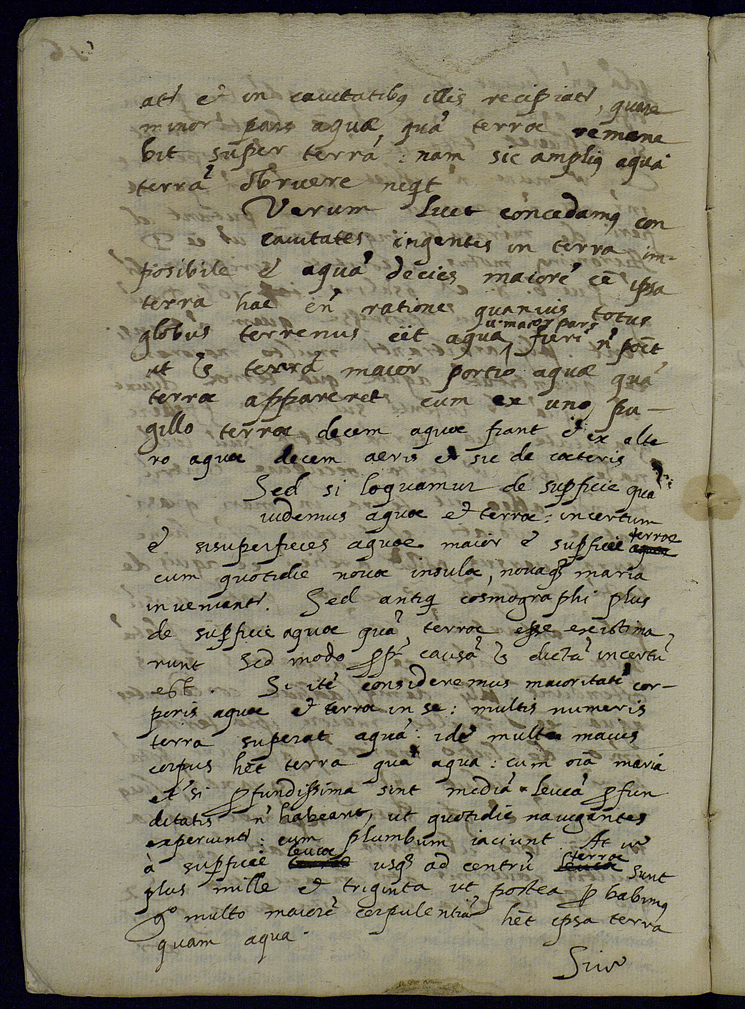 atr et in cauitatibꝰ illis recipiatr, quare
minor pars aquæ quã terræ remane
bit super terrã: nam sic ampliꝰ aqua
terrã obruere neqt
Verum licet concedamꝰ con
cauitates ingentes in terra im-
posibile ẽ aquã decies maiorẽ eẽ ipsa
terra hac eñ ratione quamuis totus
globus terrenus eẽt aqua ut maior pars fieri ñ poẽt
ut terrã maior portio aquæ quã
terræ appareret cum ex uno pu-
gillo terræ decem aquæ fiant et ex alte
ro aquæ decem aeris et sic de cæteris
Sed si loquamur de supficie quã
uidemus aquæ et terræ: incertum
ẽ si superficies aquæ maior ẽ supficie terræ aquæ
cum quotidie nouæ insulæ, nouaqꝫ maria
inueniantr. Sed antiqi cosmographi plus
de supficie aquæ quã terræ esse existima
runt Sed modo ppr causã dictã incertũ
est. Si itẽ consideremus maioritatẽ cor-
poris aquæ et terræ in se: multis numeris
terra superat aquã: idẽ multo maius
corpus hẽt terra quã aqua: cum oĩa maria
et si pfundissima sint mediã leucã pfun
ditatis ñ habeant, ut quotidie nauigantes
experiuntr: cum plumbum iaciunt At uº
à supficie leucæ terræ usqꝫ ad centrũ terræ leucæ sunt
plus mille et triginta ut postea pbabimꝰ
gº multo maiorẽ corpulentiã hẽt ipsa terra
quam aqua.